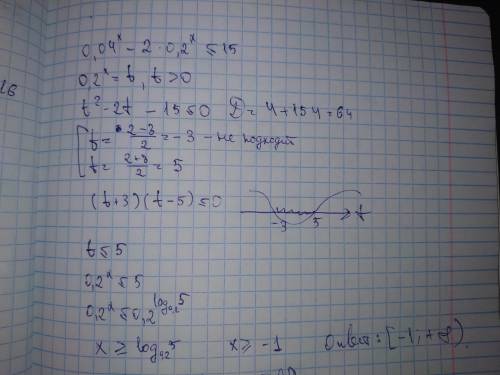 26
0,04^x - 2·0,2^x ≤ 15
0,2^x = t, t > 0
t² - 2t - 15 ≤ 0 D = 4 + 15·4 = 64
t = (2-8)/2 = -3 - не подходит
t = (2+8)/2 = 5
(t+3)(t-5) ≤ 0
-3 5 t
t ≤ 5
0,2^x ≤ 5
0,2^x ≤ 0,2^(log_0,2 5)
x ≥ log_0,2 5 x ≥ -1 Ответ: [-1; +∞)